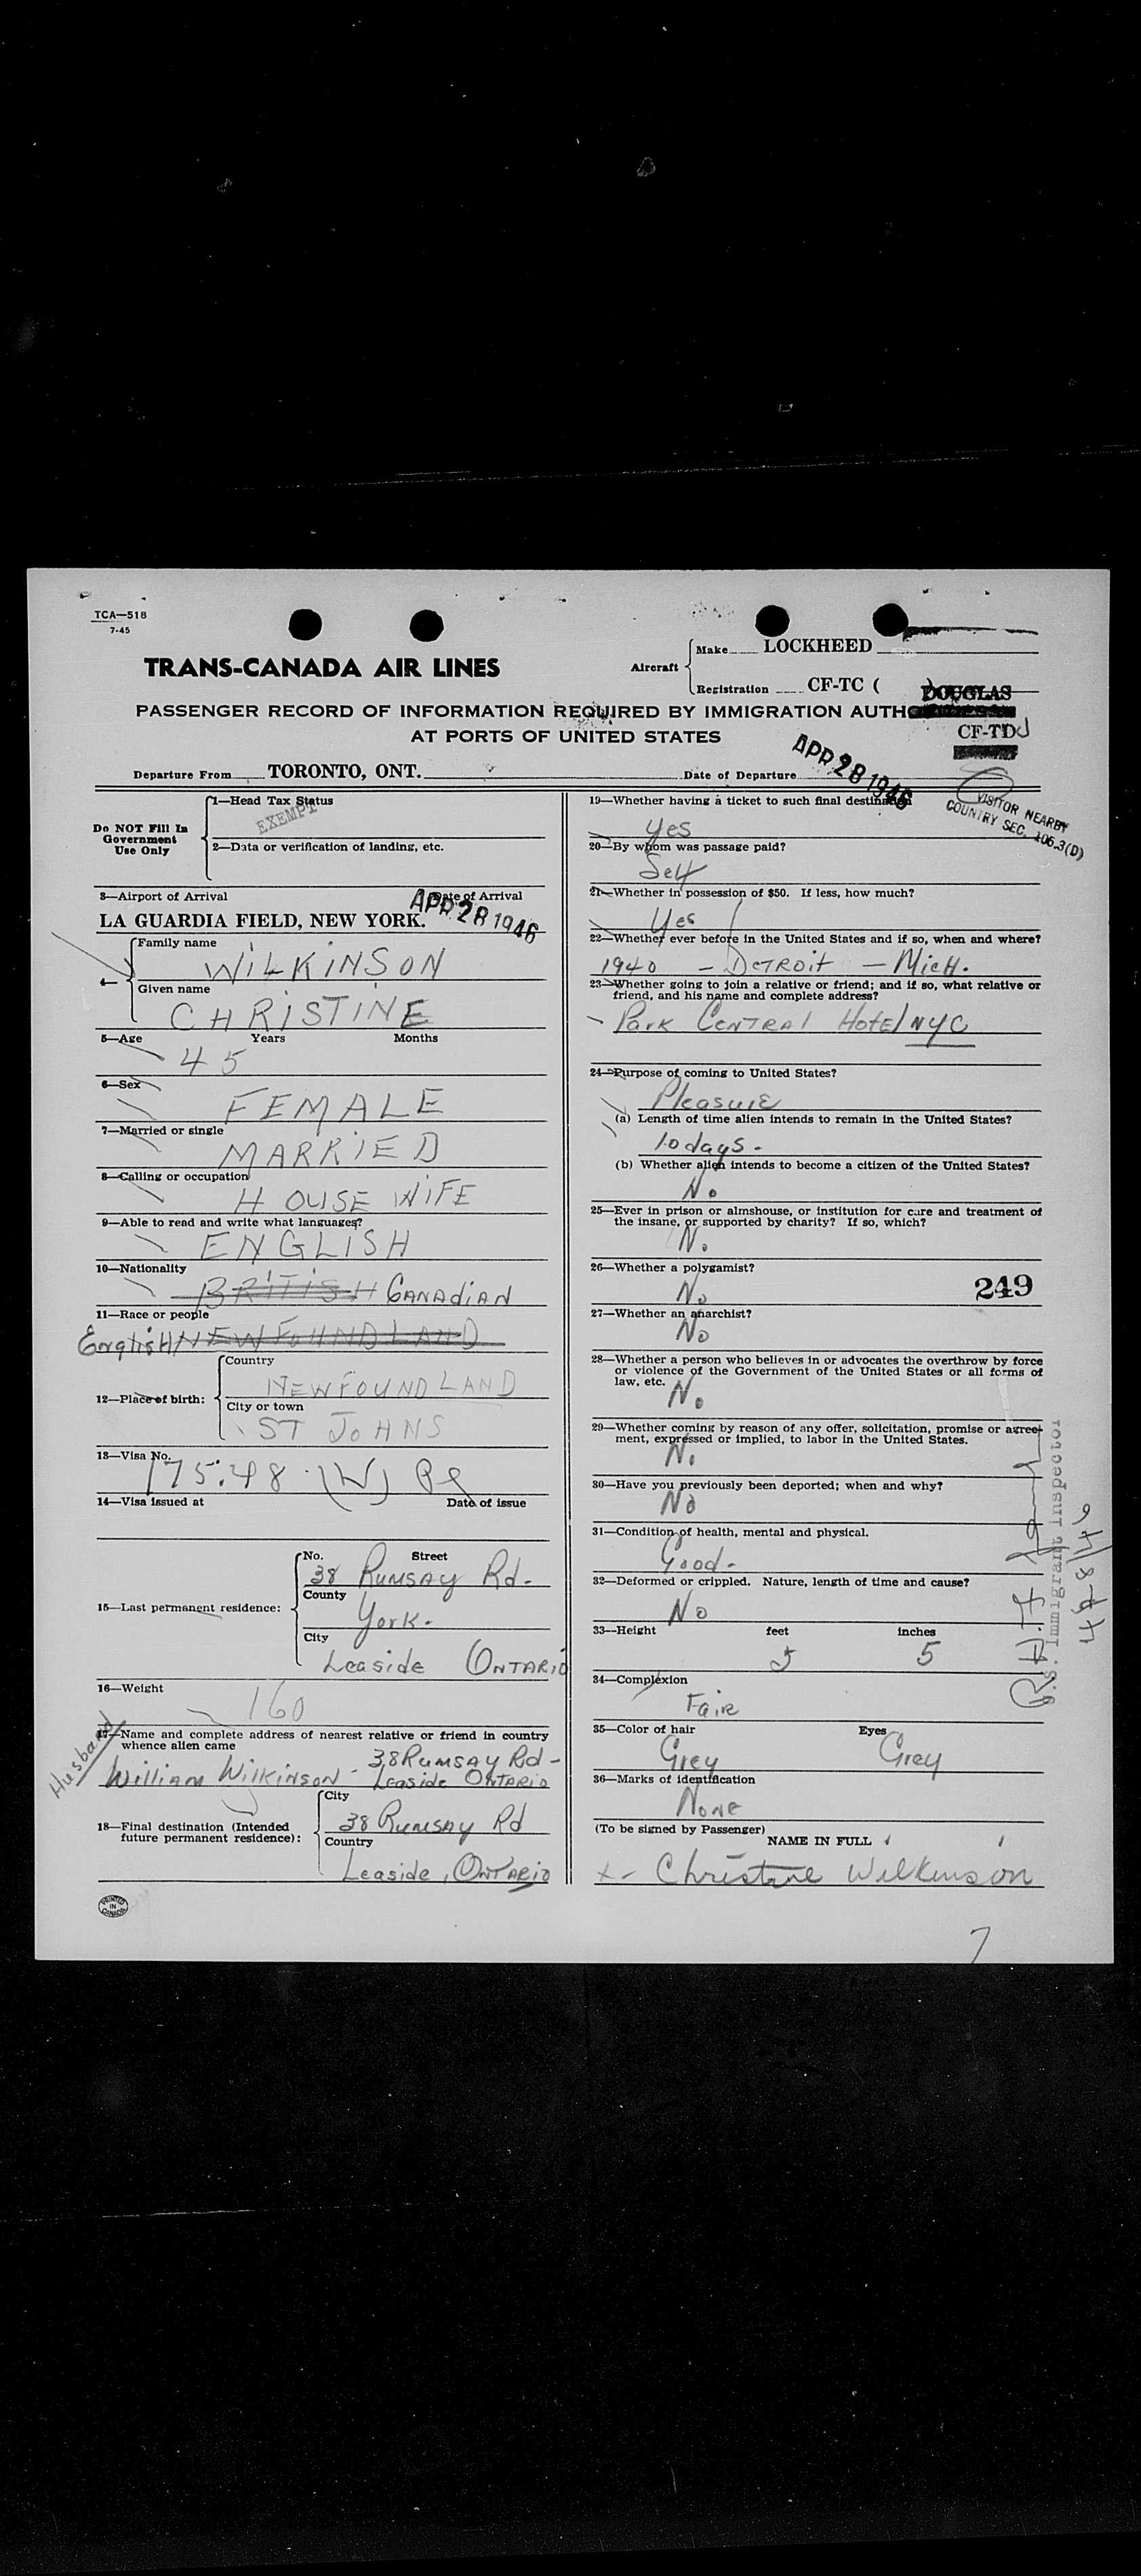 TCA—518
7-45
TRANS-CANADA AIR LINES
Aircraft
Make LOCKHEED
Registration CF-TC (
DOUGLAS
PASSENGER RECORD OF INFORMATION REQUIRED BY IMMIGRATION AUTHO
AT PORTS OF UNITED STATES
CF-TDJ
Departure From TORONTO, ONT.
Date of Departure APR 28 1946
VISITOR NEARBY
COUNTRY SEC. 106.3(D)
Do NOT Fill In
Government
Use Only
1—Head Tax Status
EXEMPT
2—Data or verification of landing, etc.
3—Airport of Arrival Date of Arrival
LA GUARDIA FIELD, NEW YORK. APR 28 1946
4— Family name
WILKINSON
Given name
CHRISTINE
5—Age Years Months
45
6—Sex
FEMALE
7—Married or single
MARRIED
8—Calling or occupation
HOUSE WIFE
9—Able to read and write what languages?
ENGLISH
10—Nationality
BRITISH CANADIAN
11—Race or people
English NEWFOUNDLAND
12—Place of birth:
Country
NEWFOUNDLAND
City or town
ST JOHNS
13—Visa No.
175.48 (W)
14—Visa issued at Date of issue
15—Last permanent residence:
No. Street
38 Rumsay Rd-
County
York.
City
Leaside ONTARIO
16—Weight
160
Husband
17—Name and complete address of nearest relative or friend in country
whence alien came
38 Rumsay Rd-
William Wilkinson - Leaside ONTARIO
18—Final destination (Intended
future permanent residence):
City
38 Rumsay Rd
Country
Leaside, ONTARIO
PRINTED
IN
CANADA
19—Whether having a ticket to such final destination
Yes
20—By whom was passage paid?
Self
21—Whether in possession of $50. If less, how much?
Yes
22—Whether ever before in the United States and if so, when and where?
1940 - Detroit - Mich.
23—Whether going to join a relative or friend; and if so, what relative or
friend, and his name and complete address?
Park Central Hotel NYC
24—Purpose of coming to United States?
Pleasure
(a) Length of time alien intends to remain in the United States?
10 days-
(b) Whether alien intends to become a citizen of the United States?
No
25—Ever in prison or almshouse, or institution for care and treatment of
the insane, or supported by charity? If so, which?
No
26—Whether a polygamist?
No
249
27—Whether an anarchist?
No
28—Whether a person who believes in or advocates the overthrow by force
or violence of the Government of the United States or all forms of
law, etc.
No
29—Whether coming by reason of any offer, solicitation, promise or agree-
ment, expressed or implied, to labor in the United States.
No
30—Have you previously been deported; when and why?
No
31—Condition of health, mental and physical.
Good-
32—Deformed or crippled. Nature, length of time and cause?
No
33—Height feet inches
5 5
34—Complexion
Fair
35—Color of hair Eyes
Grey Grey
36—Marks of identification
None
(To be signed by Passenger)
NAME IN FULL
x- Christine Wilkinson
U.S. Immigrant Inspector
7